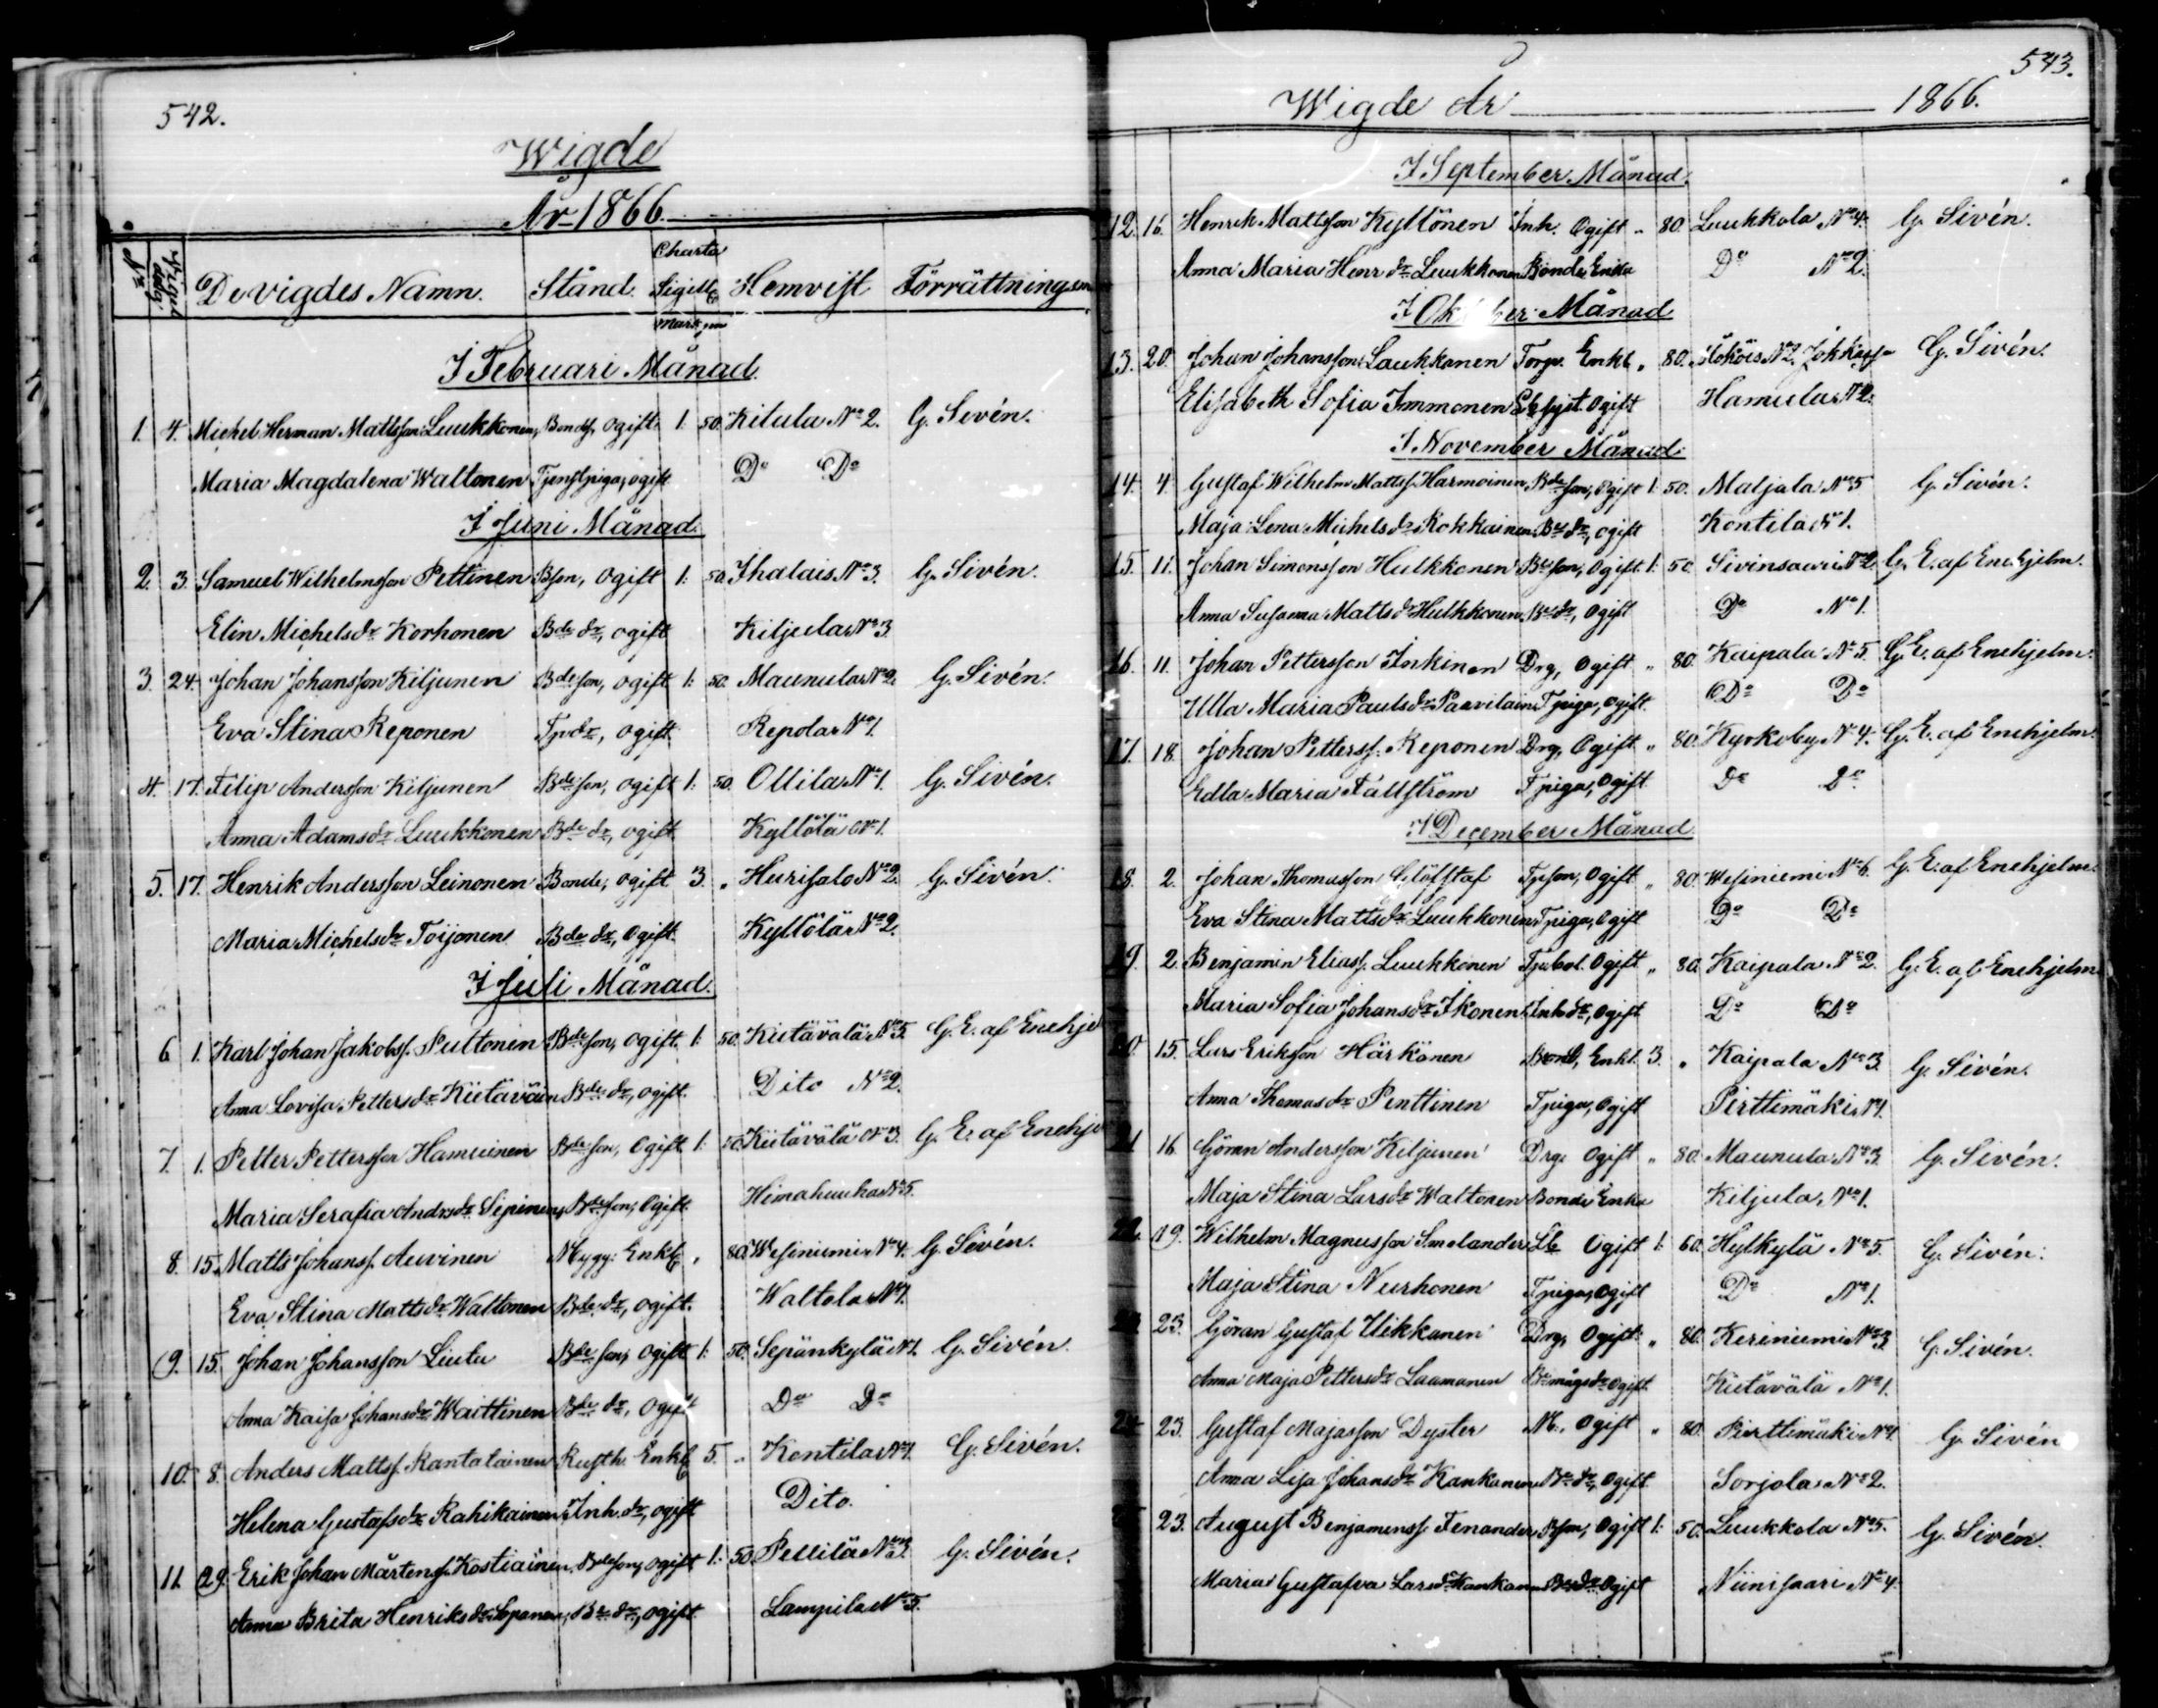 542.
Wigde
År 1866.
No Vigsel dag. De vigdes Namn. Stånd. Charta Sigill. Hemvist Förrättningsm
Mark pen
I Februari Månad.
1. 4. Michel Herman Mattsson Luukkonen, Bondes, ogift 1: 50. Kilula No 2. G. Sivén.
Maria Magdalena Waltonen Tjenstpiga, ogift Do Do
I Juni Månad.
2. 3. Samuel Wilhelmsson Pettinen Bson, Ogift 1: 50. Ihalais No 3. G. Sivén.
Elin Michelsdr Korhonen Bde dr, ogift Kiljula No 3.
3. 24. Johan Johansson Kiljunen Bde son, ogift 1: 50. Maunula No 2. G. Sivén.
Eva Stina Reponen Tpdr, ogift Repola No 1.
4. 17. Filip Andersson Kiljunen Bde son, ogift 1: 50. Ollila No 1. G. Sivén.
Anna Adamsdr Luukkonen Bde dr, ogift Kyllölä No 1.
5. 17. Henrik Andersson Leinonen Bonde, ogift 3. " Hurisalo No 2. G. Sivén.
Maria Michelsdr Toijonen Bde dr, Ogift Kyllölä No 2.
I Juli Månad.
6 1. Karl Johan Jakobss. Pulkonen Bde son, ogift. 1: 50. Kiitävälä No 5. G. E. af Enehje
Anna Lovisa Pettersdr Kietäväin Bde dr, ogift. Dito No 2.
7. 1. Petter Pettersson Hamunen Bde son, Ogift 1: 50. Kiitävälä No 3. G. E. af Enehje
Maria Serafia Andersdr Sepinen, Bde son, Ogift. Himahuuha No 5.
8. 15. Matts Johanss. Auvinen Enkl. " 80. Wesiniemi No 4. G. Sivén.
Eva Stina Mattsdr Waltonen Bde dr, ogift. Waltola No 1.
9. 15. Johan Johansson Liutu Bde son, Ogift 1: 50. Sepänkylä No 1. G. Sivén.
Anna Kaisa Johansdr Waittinen Bde dr, Ogift Do Do
10. 8. Anders Mattss. Rantalainen Rusth. Enkl 5. " Kontila No 1. G. Sivén.
Helena Gustafsdr Rahikainen, Inh. dr, ogift Dito.
11. 29. Erik Johan Mårtenss. Kostiainen, Bdeson, ogift 1: 50. Pellilä No 3. G. Sivén.
Anna Brita Henriksdr Sopanen, Bde dr, ogift Lampila No 5.
543.
Wigde År 1866.
I September Månad.
12. 16. Henrik Mattsson Kyllönen Inh. Ogift " 80. Luukkola No 4. G. Sivén.
Anna Maria Henr dr Luukkonen Bonde Enka Do No 2.
I Oktober Månad
13. 20. Johan Johansson Laukkanen Torp. Enkl. " 80. No 2. G. Sivén.
Elisabeth Sofia Immonen Ogift Hamula No 2.
I November Månad.
14. 4. Gustaf Wilhelm Mattss. Harmoinen Bde son, Ogift 1: 50. Maljala No 5 G. Sivén.
Maja Lena Michelsdr Rokkainen Bde dr, ogift Kontila No 1.
15. 11. Johan Simonsson Hulkkonen Bde son, Ogift 1: 50. Sivinsaari No 2. G. E. af Enehjelm.
Anna Susanna Mattsdr Hulkkonen Bde dr, Ogift Do No 1.
16. 11. Johan Pettersson Inkinen Drg, Ogift " 80. Kaipala No 5. G. E. af Enehjelm.
Ulla Maria Paulsdr Paavilain. Tpiga, Ogift. Do Do
17. 18. Johan Petterss. Reponen Drg, Ogift " 80. Kyrkoby No 4. G. E. af Enehjelm.
Edla Maria Fällström Tpiga, Ogift Do Do
I December Månad
18. 2. Johan Thomasson Glöfstaf Tpson, Ogift " 80. Wesiniemi No 6. G. E. af Enehjelm.
Eva Stina Mattsdr Luukkonen Tpiga, Ogift Do Do
19. 2. Benjamin Eliass. Luukkonen Ogift " 80. Kaipala No 2. G. E. af Enehjelm
Maria Sofia Johansdr Ikonen Inh dr, Ogift Do Do
20. 15. Lars Eriksson Härkönen Bonde, Enkl. 3. " Kaipala No 3. G. Sivén.
Anna Thomasdr Penttinen Tpiga, Ogift Pirttimäki No 1.
21 16. Göran Andersson Kiljunen Drg. Ogift " 80. Maunula No 3. G. Sivén.
Maja Stina Larsdr Waltonen Bonde Enka Kiljula, No 1.
22. 19. Wilhelm Magnusson Smolander Ogift 1: 60. Hylkylä No 5. G. Sivén.
Maja Stina Neurhonen Tpiga, Ogift Do No 1.
23. 23. Göran Gustaf Ukkanen Drg, Ogift " 80. Keriniemi No 3. G. Sivén.
Anna Maja Pettersdr Laamanen Bde mågs dr Ogift. Kiitävälä No 1.
24 23. Gustaf Majasson Dyster Ogift " 80. Pirttimäki No 1. G. Sivén
Anna Lisa Johansdr Kankanen Bde dr, Ogift Sorjola No 2.
23. August Benjaminss. Tenander Bson, Ogift 1: 50. Luukkola No 5. G. Sivén.
Maria Gustafva Larsdr Kankanen Bde dr, Ogift Niinisaari No 4